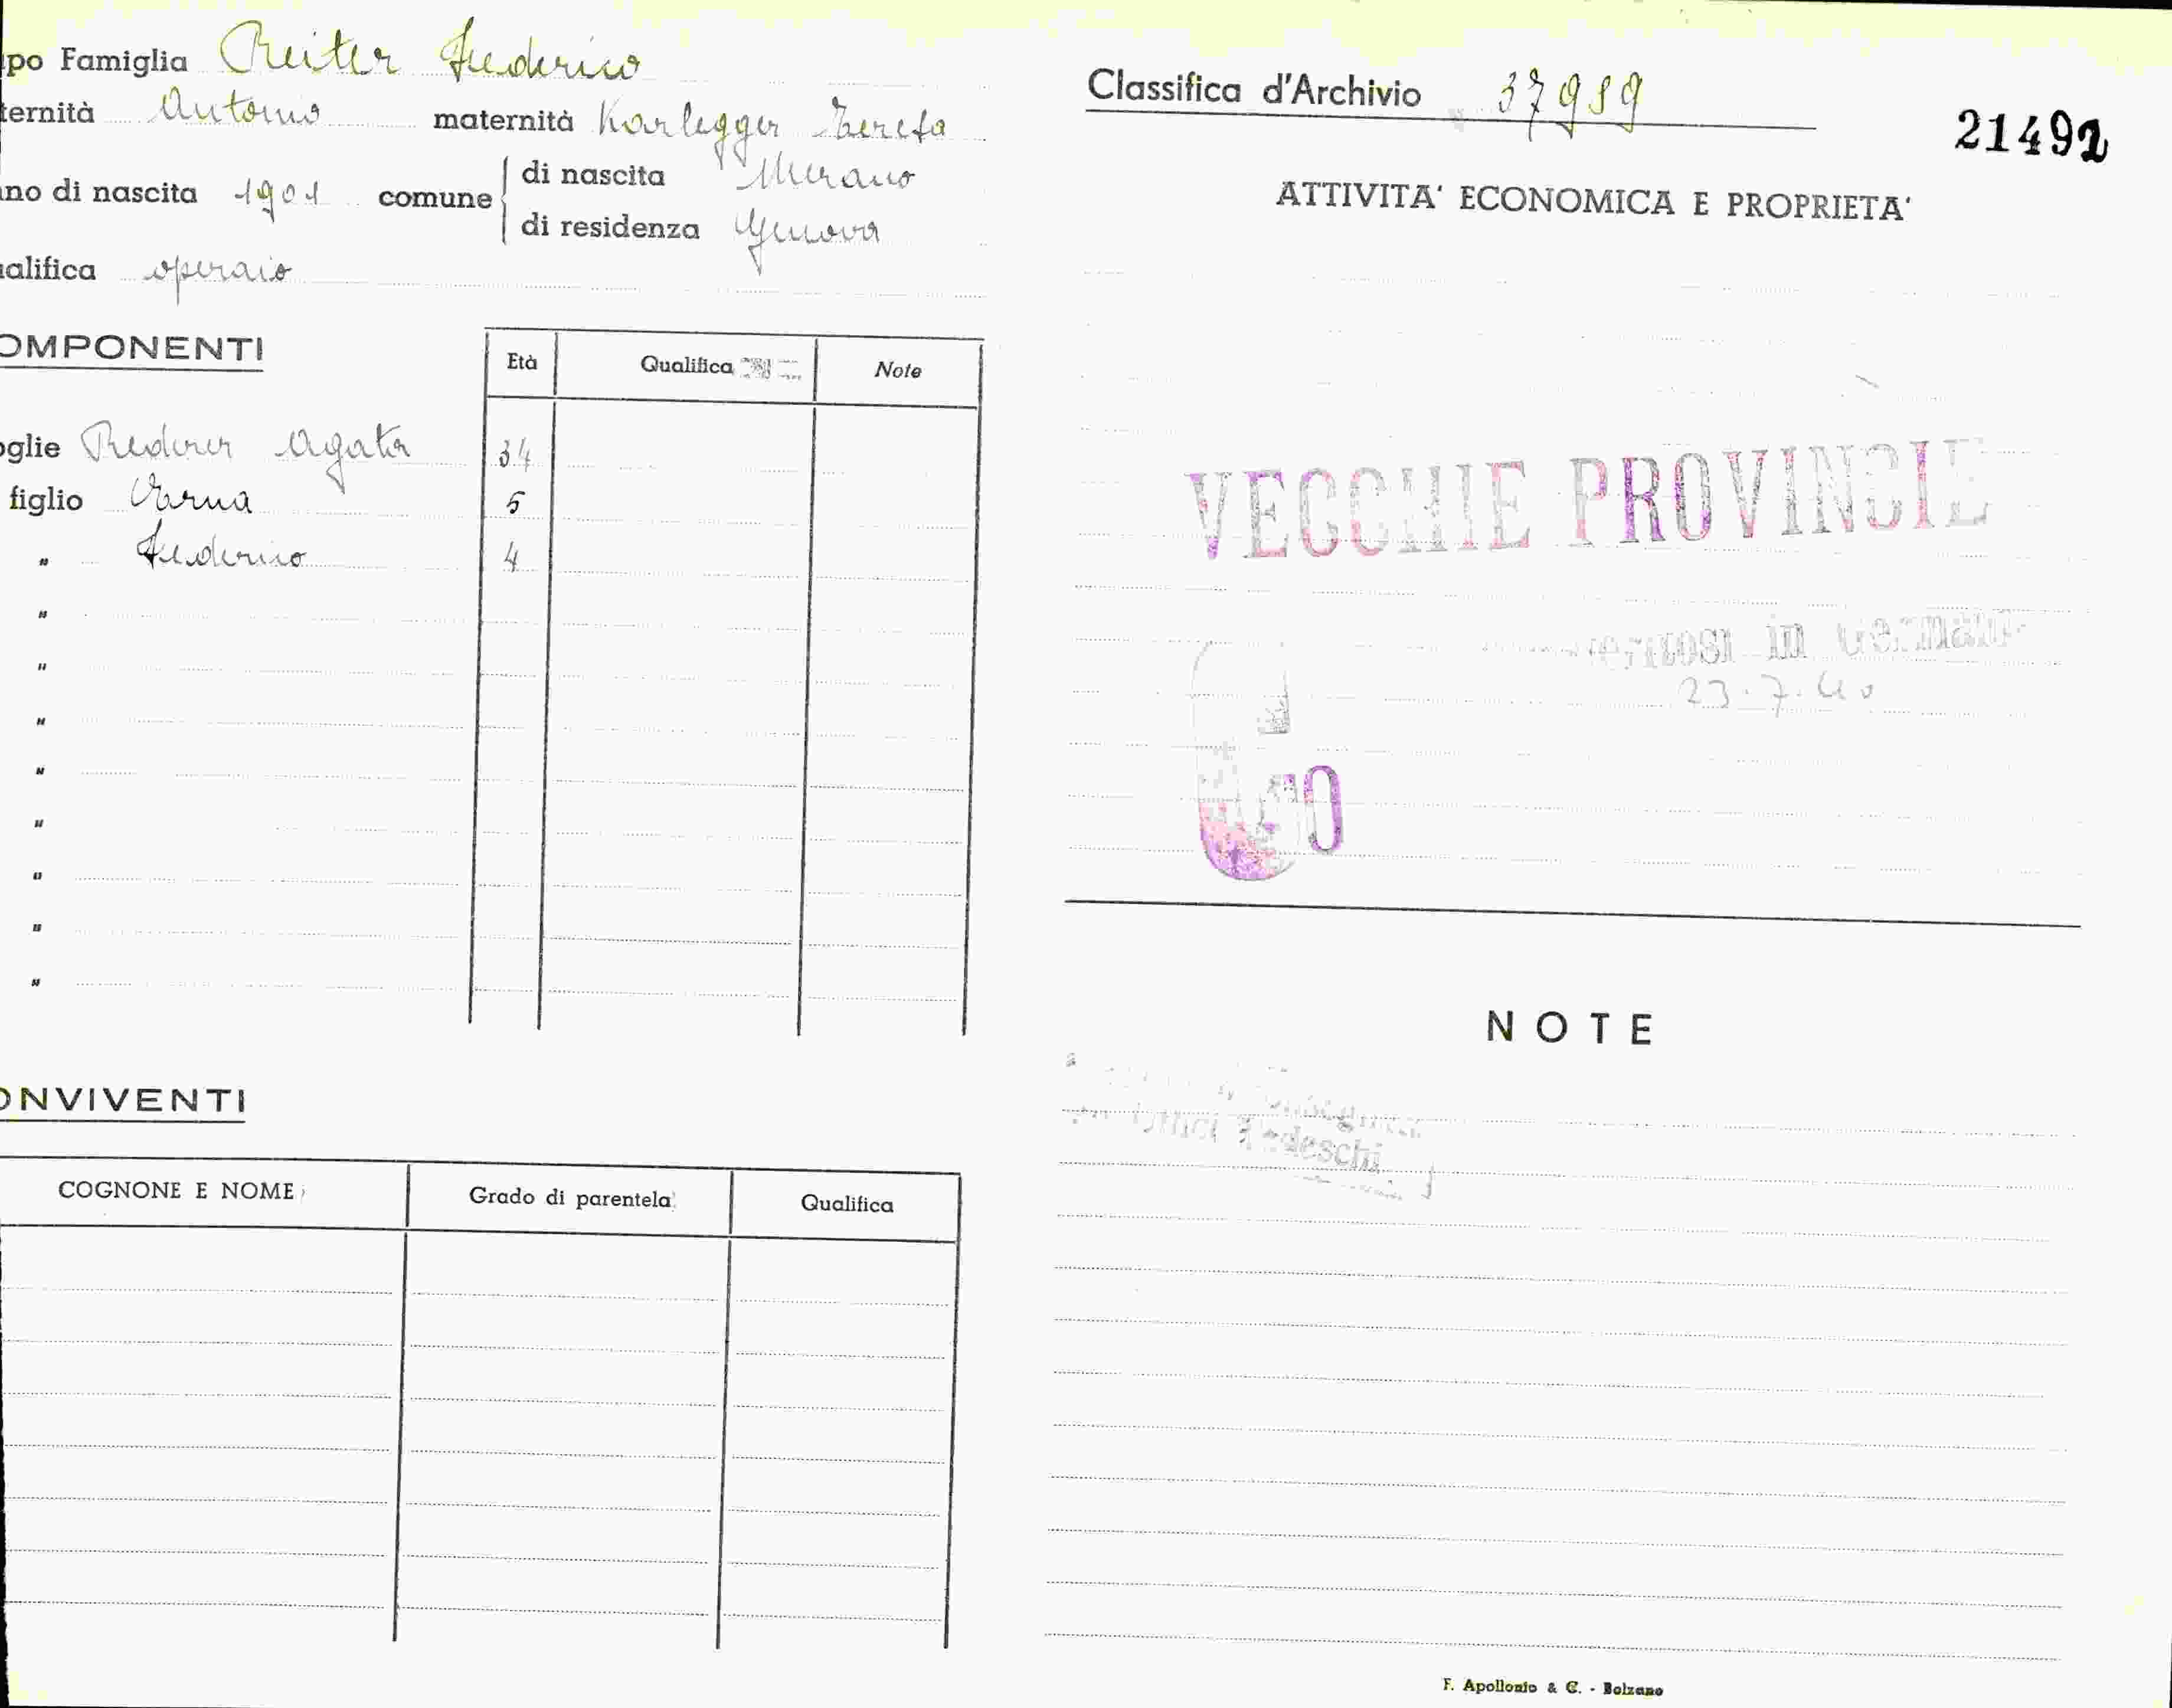 po Famiglia Reiter Federico
ternità Antonio maternità Karlegger Teresa
no di nascita 1901 comune di nascita Merano
di residenza Genova
alifica operaio
OMPONENTI
Età Qualifica Note
oglie Rederer Agata 34
figlio Varna 5
" Federico 4
"
"
"
"
"
"
"
"
ONVIVENTI
COGNONE E NOME Grado di parentela Qualifica
Classifica d'Archivio 37989
21492
ATTIVITA' ECONOMICA E PROPRIETA'
VECCHIE PROVINCIE
in
23.7.40
NOTE
Tedeschi
F. Apollonio & C. - Bolzano